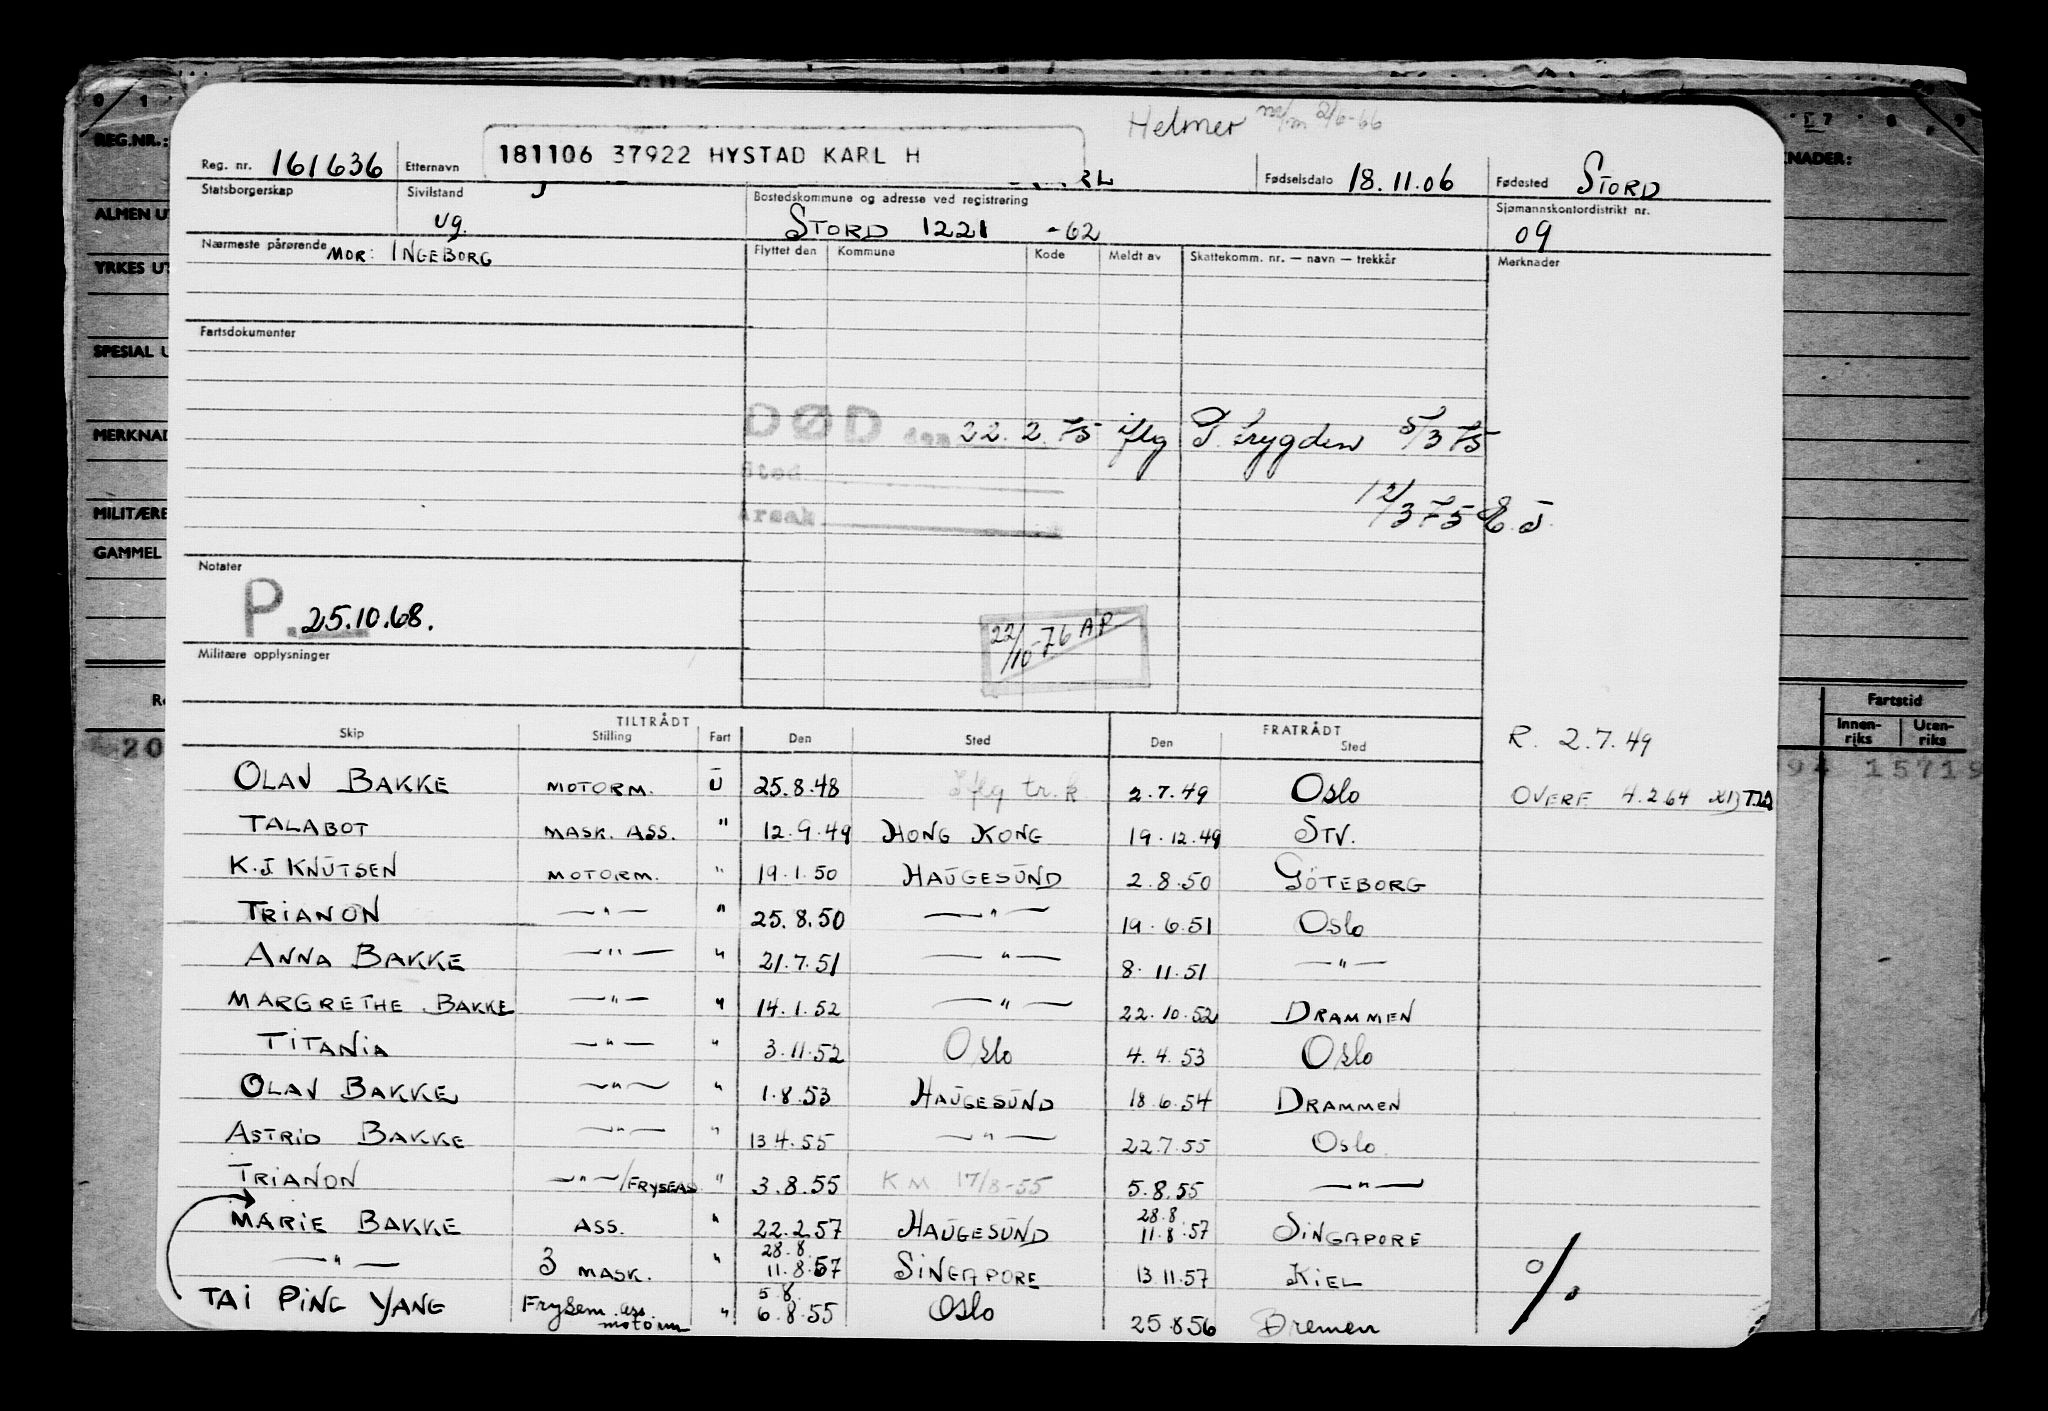 Helmer
REG.NR.:
Reg. nr. 161636 Etternavn 181106 37922 HYSTAD KARL H Fødselsdato 18.11.06 Fødested STORD
Statsborgerskap Sivilstand ug. Bostedskommune og adresse ved registrering STORD 1221 -62 Sjømannskontordistrikt nr. 09
Nærmeste pårørende MOR: INGEBORG Flyttet den Kommune Kode Meldt av Skattekomm. nr. — navn — trekkår Merknader
Fartsdokumenter
DØD den 22.2.75 iflg T. trygden 5/3 75
Sted
Årsak
12/3 75 E.J.
Notater
P. 25.10.68.
22/10-76 AP
Militære opplysninger
TILTRÅDT FRATRÅDT
Skip Stilling Fart Den Sted Den Sted R. 2.7.49
OLAV BAKKE MOTORM. U 25.8.48 Iflg tr.k 2.7.49 OSLO OVERF 4.2 64
TALABOT MASK. ASS. " 12.9.49 HONG KONG 19.12.49 STV.
K.J KNUTSEN MOTORM. " 19.1.50 HAUGESUND 2.8.50 GÖTEBORG
TRIANON —"— " 25.8.50 —"— 19.6.51 OSLO
ANNA BAKKE —"— " 21.7.51 —"— 8.11.51 —"—
MARGRETHE BAKKE —"— " 14.1.52 —"— 22.10.52 DRAMMEN
TITANIA —"— " 3.11.52 OSLO 4.4.53 OSLO
OLAV BAKKE —"— " 1.8.53 HAUGESUND 18.6.54 DRAMMEN
ASTRID BAKKE —"— " 13.4.55 —"— 22.7.55 OSLO
TRIANON —"—/FRYSEAS " 3.8.55 KM 17/8-55 5.8.55 —"—
MARIE BAKKE ASS. " 22.2.57 HAUGESUND 28.8. 11.8.57 SINGAPORE
—"— 3 MASK. " 28.8. 11.8.57 SINGAPORE 13.11.57 KIEL
TAI PING YANG Frysem. ass. motorm " 5.8. 6.8.55 OSLO 25.8 56 Bremen
%
ALMEN U
YRKES UT
SPESIAL U
MERKNAD
MILITÆRE
GAMMEL
KNADER:
Fartstid
Innen-riks Uten-riks
20
15719